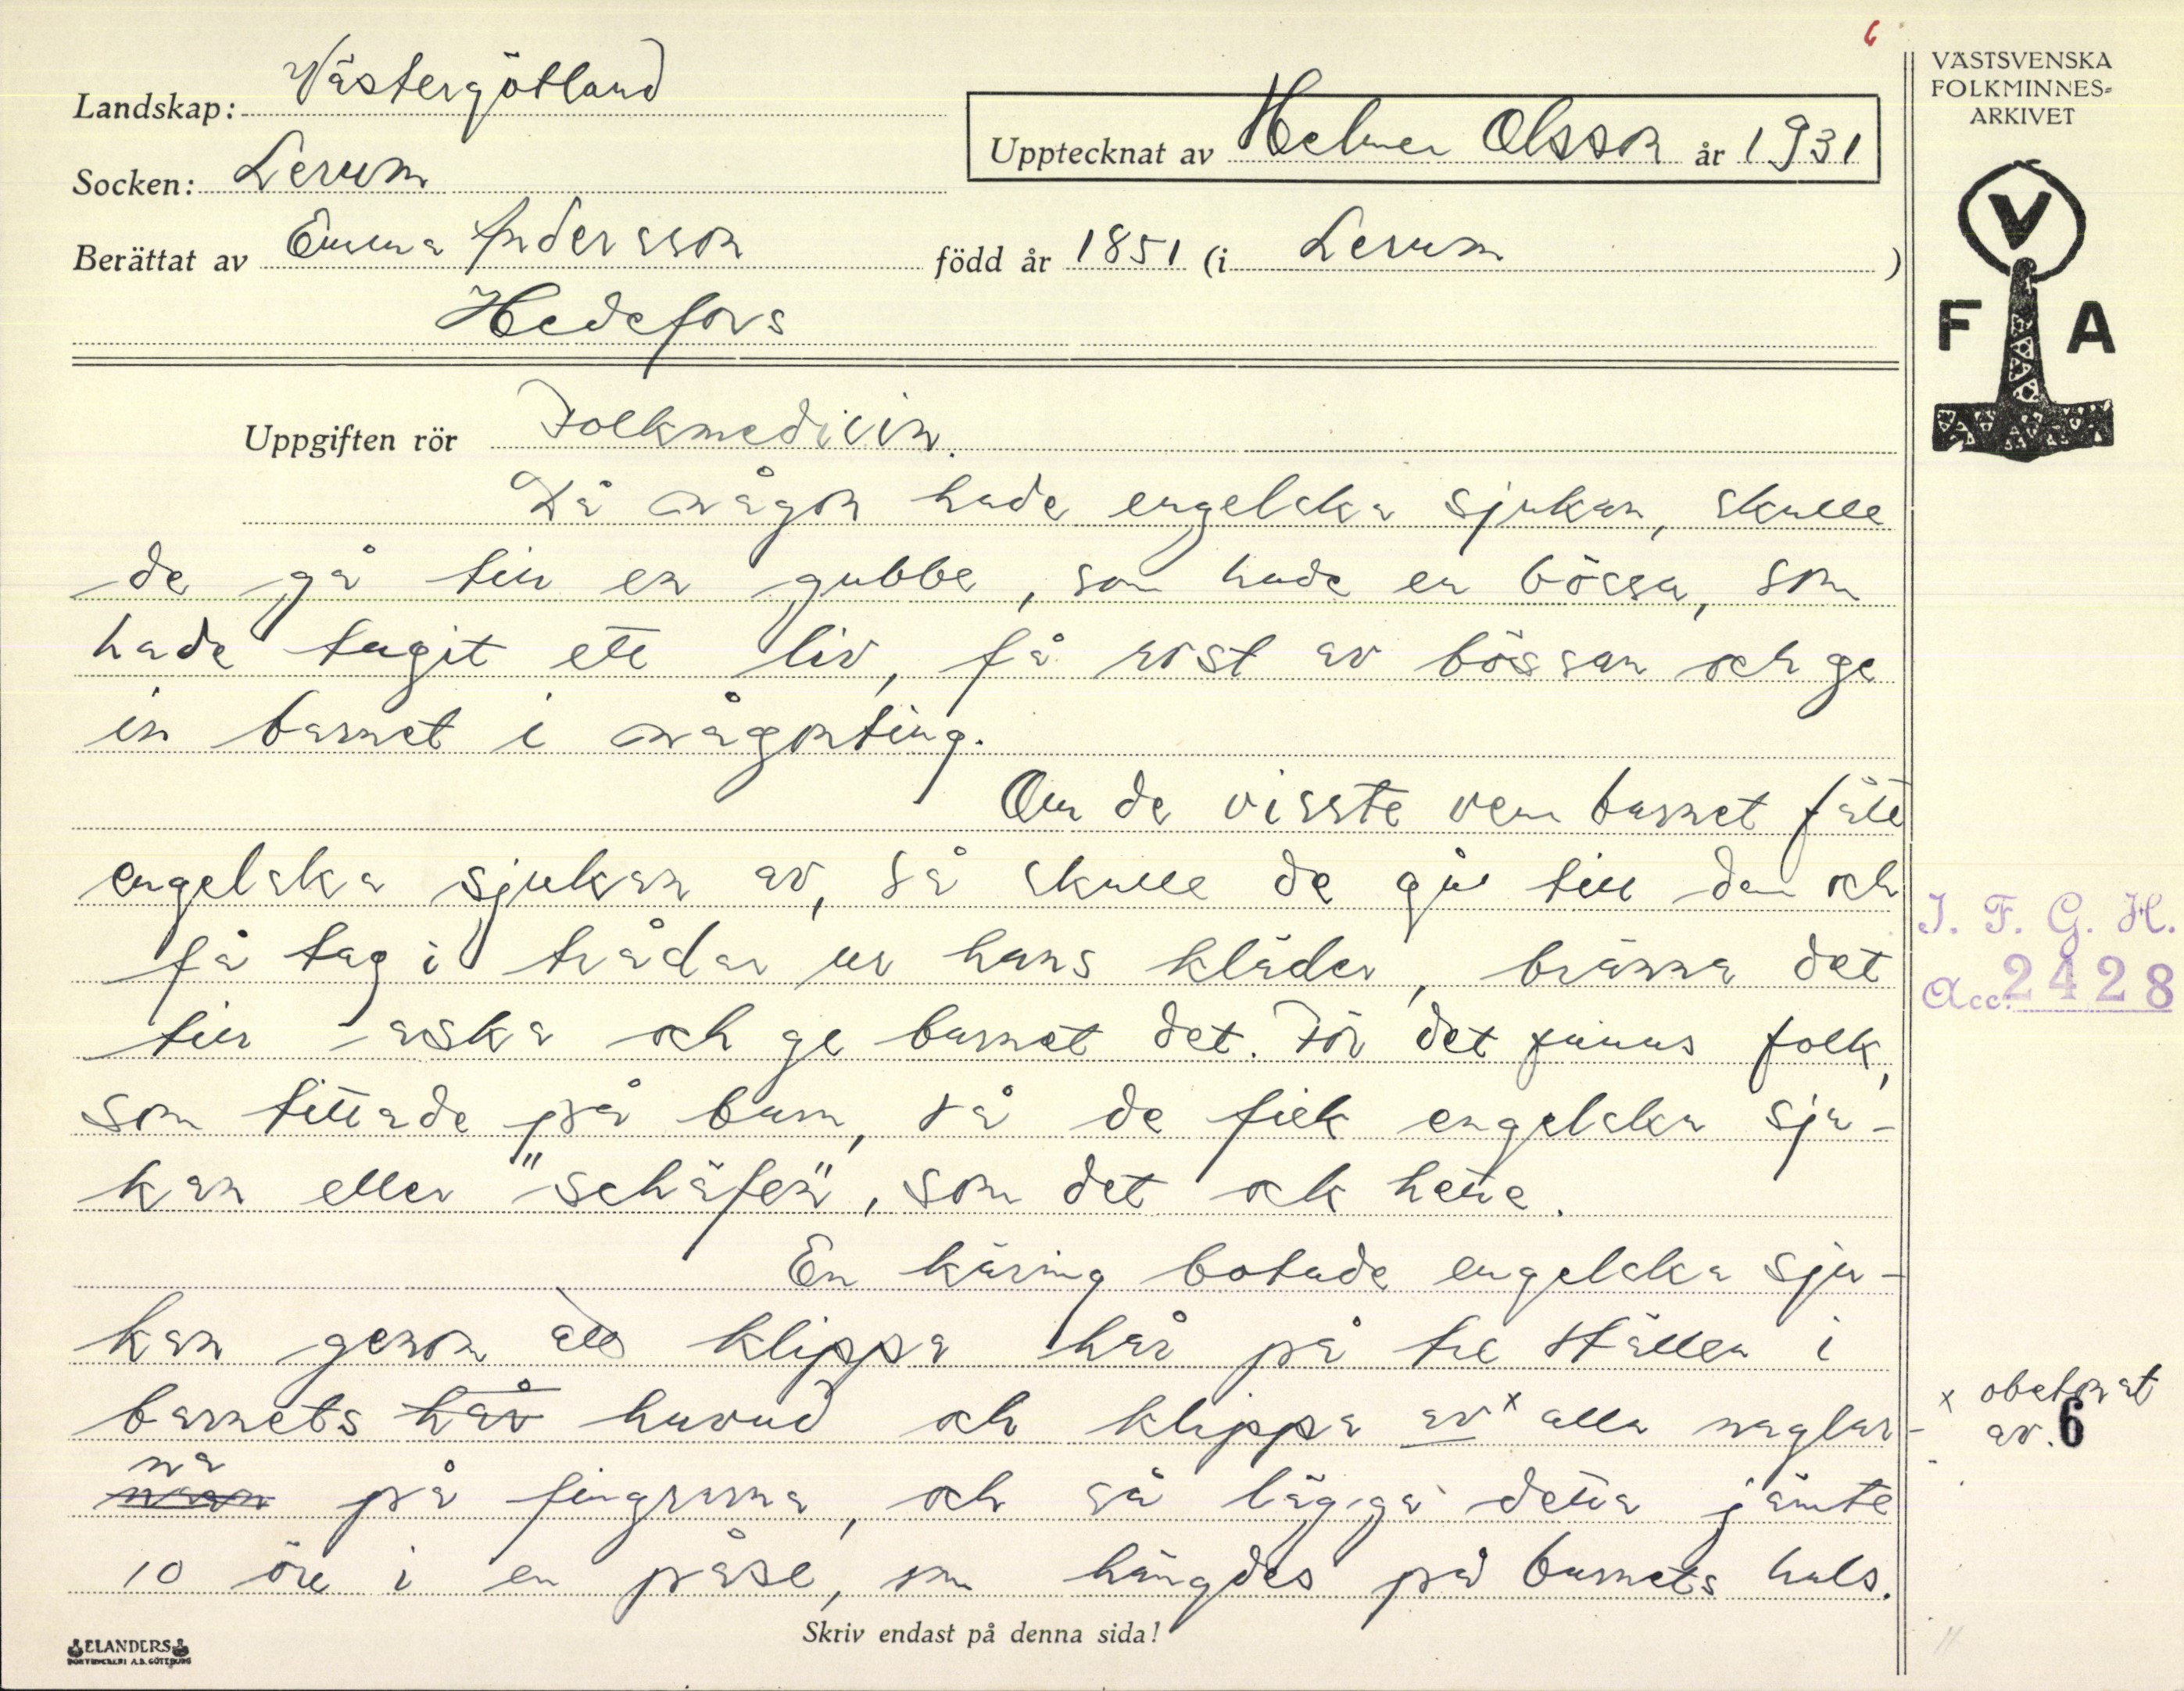 6
VÄSTSVENSKA
FOLKMINNES=
ARKIVET
Landskap: Västergötland
Upptecknat av Helmer Olsson år 1931
Socken: Lerum
Berättat av Emma Andersson född år 1851 (i Lerum )
Hedefors
V
F A
Uppgiften rör Folkmedicin.
Då någon hade engelska sjukan, skulle
de gå till en gubbe, som hade en bössa, som
hade tagit ett liv, få rost av bössan och ge
in barnet i någonting.
Om de visste vem barnet fått
engelska sjukan av, så skulle de gå till den och
få tag i trådar ur hans kläder, bränna det
till aska och ge barnet det. För det finns folk,
som tittade på barn, så de fick engelska sju-
kan eller "schäfen", som det ock hette.
En käring botade engelska sju-
kan genom att klippa hår på tre ställen i
barnets hår huvud och klippa av x alla naglar-
na
på fingrarna, och så lägga detta jämte
10 öre i en påse, som hängdes på barnets hals.
I. F. G. H.
Acc. 2428
x obetonat
av. 6
Skriv endast på denna sida!
ELANDERS
BOKTRYCKERI A.B. GÖTEBORG